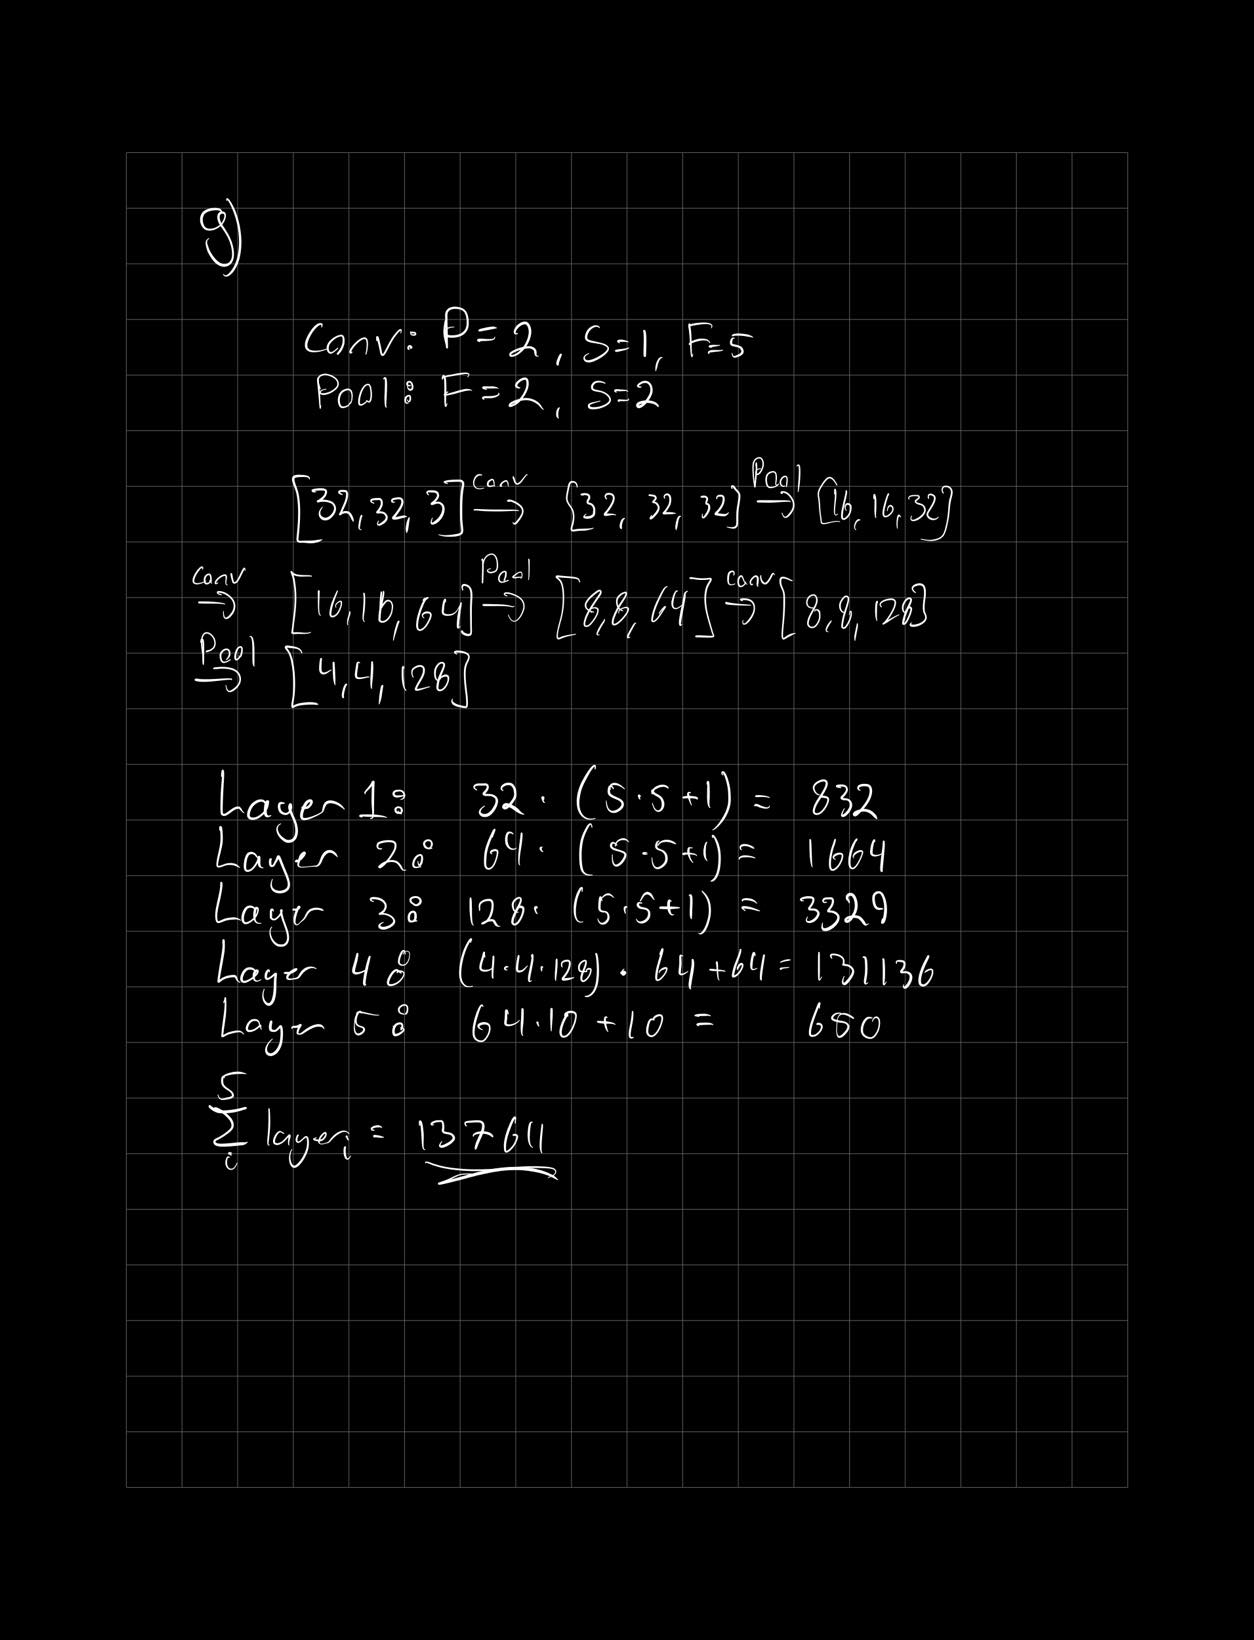 g)
Conv: P=2, S=1, F=5
Pool: F=2, S=2
[32, 32, 3] conv → [32, 32, 32] Pool → [16, 16, 32]
conv → [16, 16, 64] Pool → [8, 8, 64] conv → [8, 8, 128]
Pool → [4, 4, 128]
Layer 1: 32 · (5·5+1) = 832
Layer 2: 64 · (5·5+1) = 1664
Layer 3: 128 · (5·5+1) = 3329
Layer 4: (4·4·128) · 64 + 64 = 131136
Layer 5: 64·10 + 10 = 650
5
∑ layer i = 137611
i